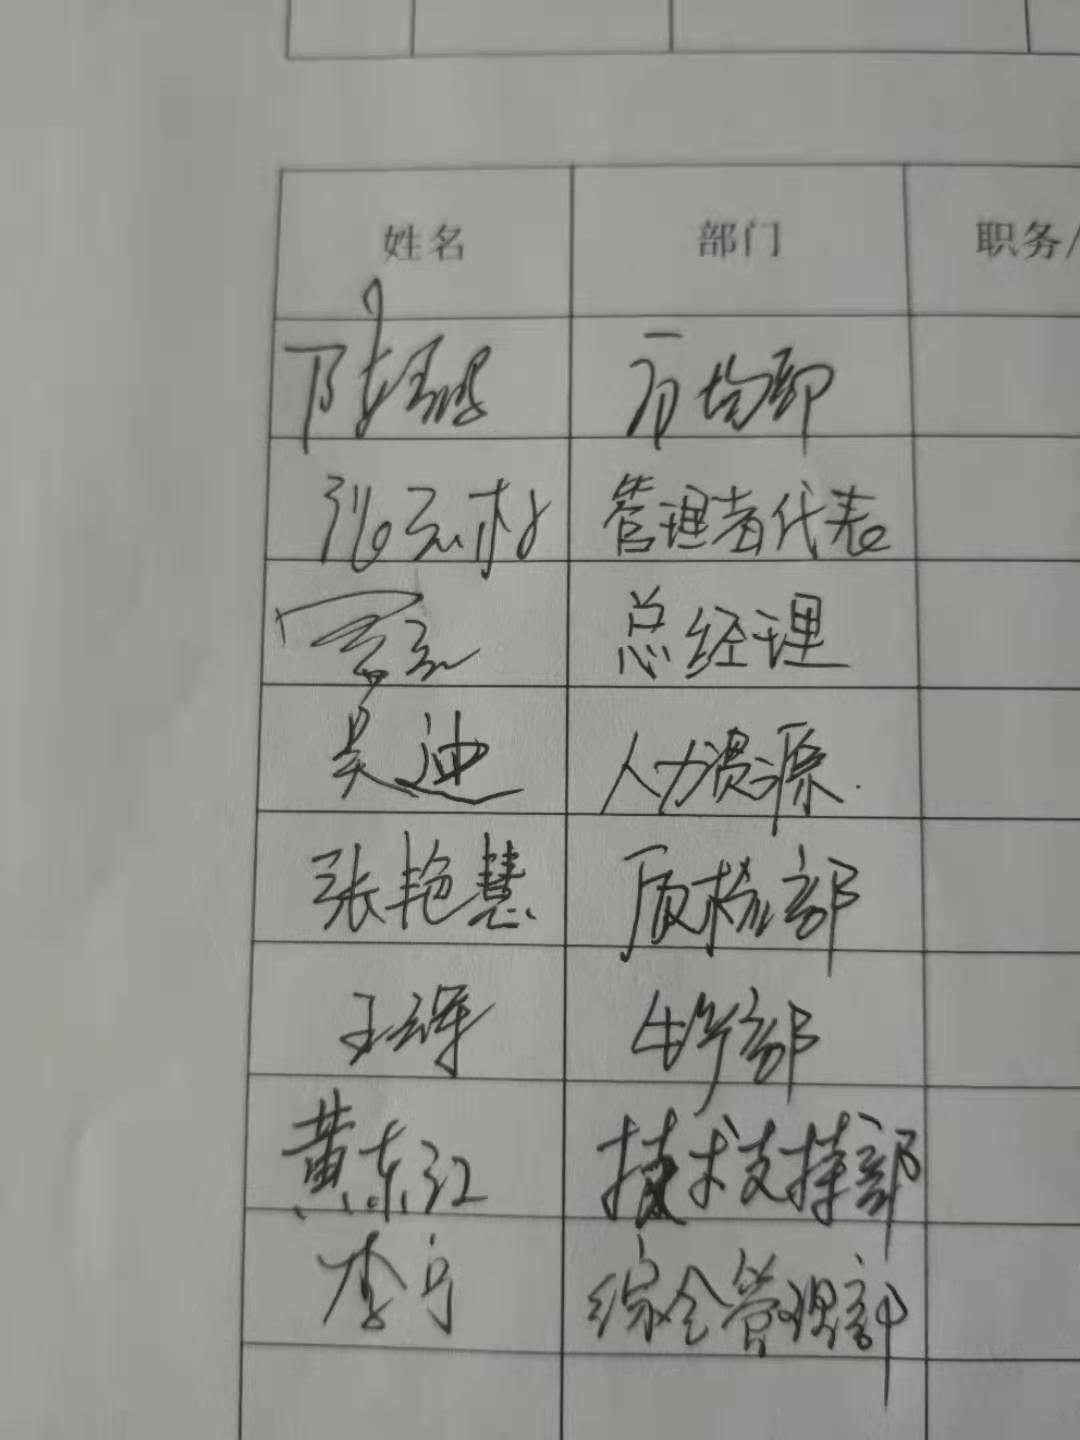 姓名 部门 职务/
陈 市场部
张云村 管理者代表
总经理
吴迪 人力资源
张艳慧 质检部
王辉 生产部
黄东江 技术支持部
李宁 综合管理部